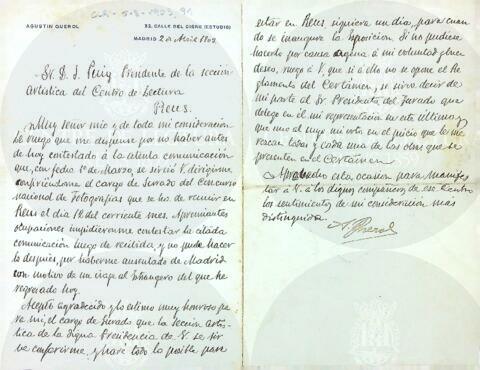 AGUSTIN QUEROL
33, CALLE DEL CISNE (ESTUDIO)
MADRID 2 de Abril 1903
Sr. D. J. Puig Presidente de la sección
Artística del Centro de Lectura
Reus.
Muy señor mio y de toda mi consideración
Le ruego que me dispense por no haber antes
de hoy contestado à la atenta comunicación
que, con fecha 1º de Marzo, se sirvió V. dirigirme
confiriéndome el cargo de Jurado del Concurso
nacional de Fotografias que se ha de reunir en
Reus el dia 12 del corriente mes. Apremiantes
ocupaciones impidieronme contestar la citada
comunicación luego de recibida, y no pude hacer
lo después, por haberme ausentado de Madrid
con motivo de un viage al Extrangero del que he
regresado hoy.
Acepto agradecido y lo estimo muy honroso pa
ra mi, el cargo de Jurado que la Sección Artís
tica de la digna Presidencia de V. se sir
ve conferirme, y haré todo lo posible para
estar en Reus siquiera un dia, para cuan
do se inaugure la Exposicion. Si no pudiera
hacerlo por causa agena à mi voluntad y buen
deseo, ruego à V. que si à ello no se opone el Re
glamento del Certámen, se sirva decir de
mi parte al Sr Presidente del Jurado que
delego en él mi representación en este último y
que uno al suyo mi voto en el juicio que le me
rezcan todas y cada una de las obras que se
presenten en el Certámen
Aprovecho esta ocasión para manifes
tar à V. à los dignos compañeros de ese Centro
los sentimientos de mi consideración más
distinguida.
A. Querol